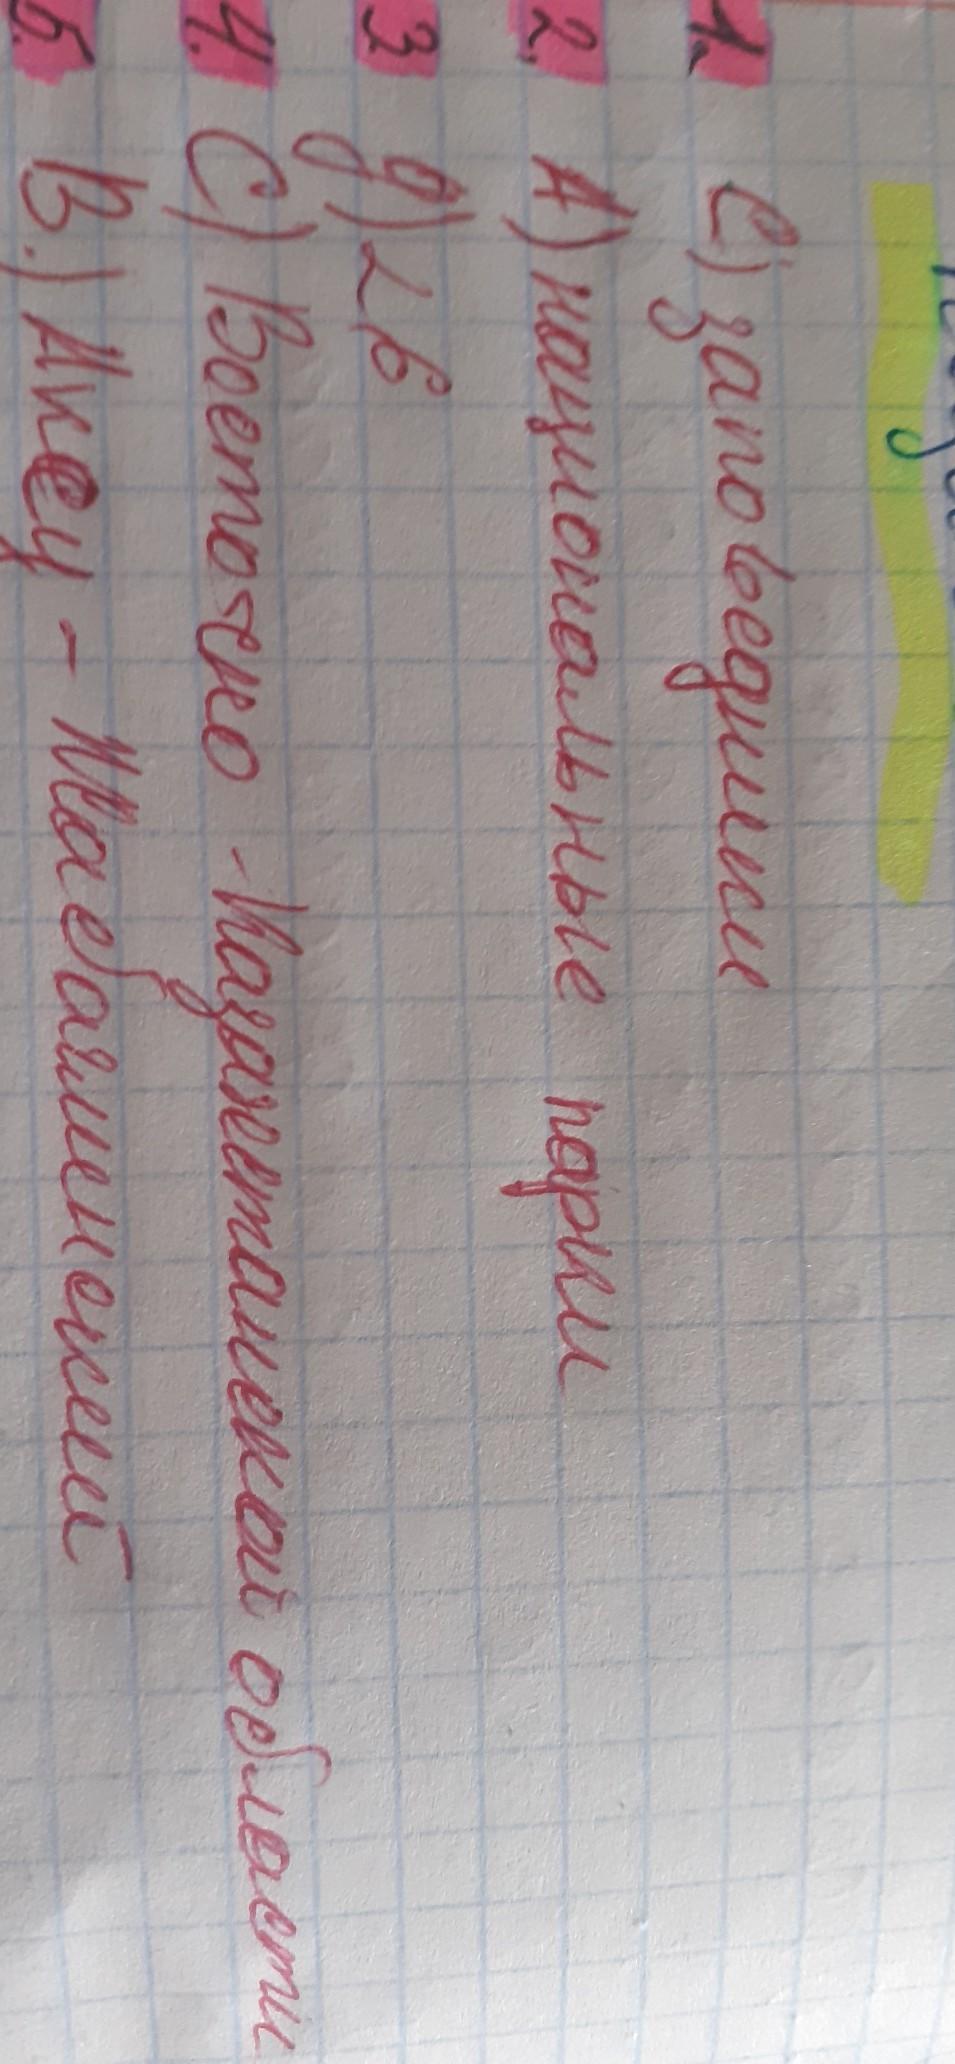 1. C) заповедники
2. А) национальные парки
3 д) 26
4. С) Восточно - Казахстанской области
5. В.) Аксу - Жабаглинский